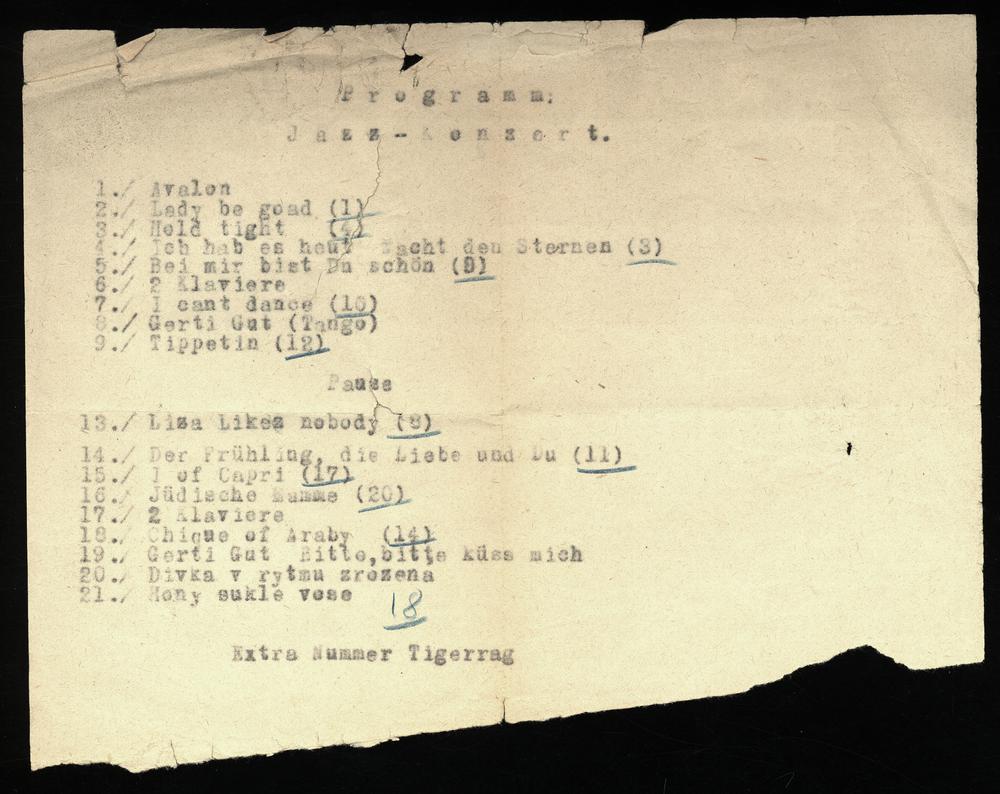 Programm:
Jazz-Konzert.
1./ Avalon
2./ Lady be goad (1)
3./ Hold tight (4)
4./ Ich hab es heut Nacht den Sternen (3)
5./ Bei mir bist Du schön (9)
6./ 2 Klaviere
7./ I cant dance (16)
8./ Gerti Gut (Tango)
9./ Tippetin (12)
Pause
13./ Liza Likes nobody (8)
14./ Der Frühling, die Liebe und Du (11)
15./ I of Capri (17)
16./ Jüdische Mamme (20)
17./ 2 Klaviere
18./ Chique of Araby (14)
19./ Gerti Gut Bitte,bitte küss mich
20./ Divka v rytmu zrozena
21./ Hony sukle vose
18
Extra Nummer Tigerrag